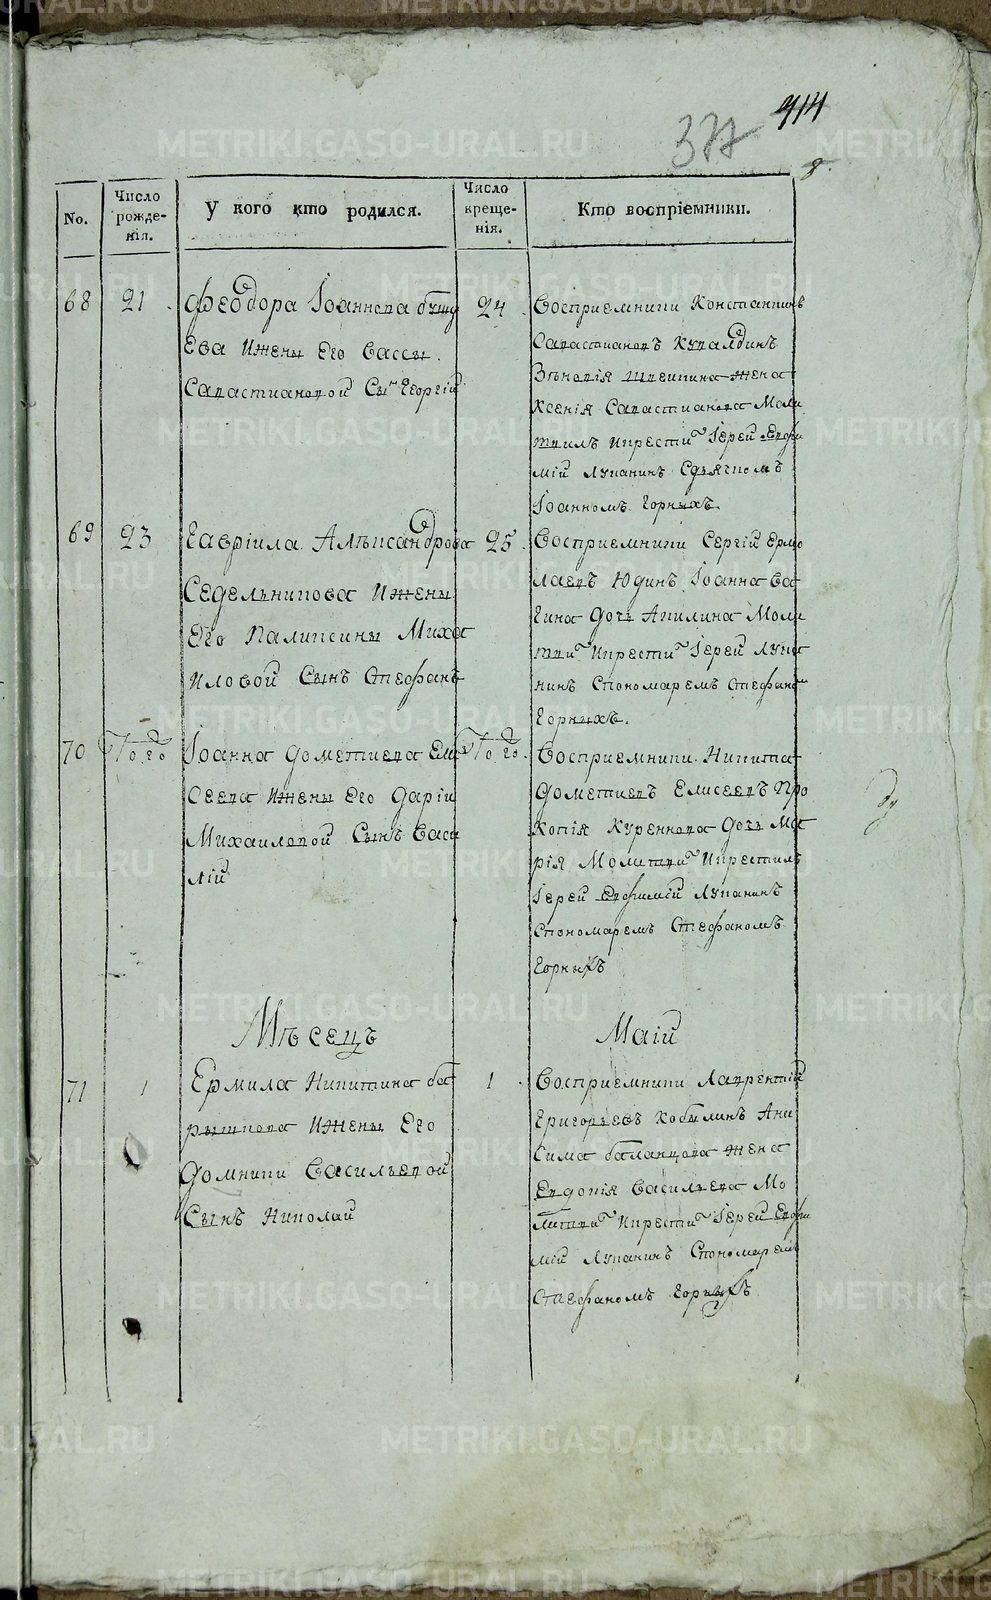 414
377
8.
No.
Число рожденія.
У кого кто родился.
Число крещенія.
Кто воспріемники.
68
21
Феодора Іоаннова бушу
ева Ижены Его Вассы
Савастиановой Сынъ Георгій
24
Воспріемники Константинъ
Савастиановъ
жена
Ксенія Савастианова Моли
твилъ Икрести Іерей Евфи
мій Лукапинъ Сдьячкомъ
Іоанномъ Горныхъ
69
23
Гавріила Алѣксандрова
Седельникова Ижены
Его Каликсины Миха
иловой Сынъ Стефанъ
25
Воспріемники Сергій Ермо
лаевъ Юдинъ Іоанна Ва
гина дочь Акилина Моли
тви Икрести Іерей Лука
пинъ Спономаремъ Стефаном
Горныхъ.
70
Того
Іоанна Дометиева Ели
сеева Ижены Его Даріи
Михаиловой Сынъ Васи
лій
Того
Воспріемники Никита
Дометиевъ Елисеевъ Про
копія Куреннова Дочь Ма
рія Молитви Икрестилъ
Іерей Евфимій Лукапинъ
Спономаремъ Стефаномъ
Горныхъ
Мѣсецъ
Маій
71
1
Ермила Никитина ба
рышкова Ижены Его
Домники Васильевой
Сынъ Николай
1
Воспріемники Лаврентій
Григорьевъ Кобылинъ Ани
сима баланцова жена
Евдокія Васильева Мо
литви Икрести Іерей Евфи
мій Лукапинъ Спономаремъ
Стефаномъ Горныхъ
METRIKI.GASO-URAL.RU